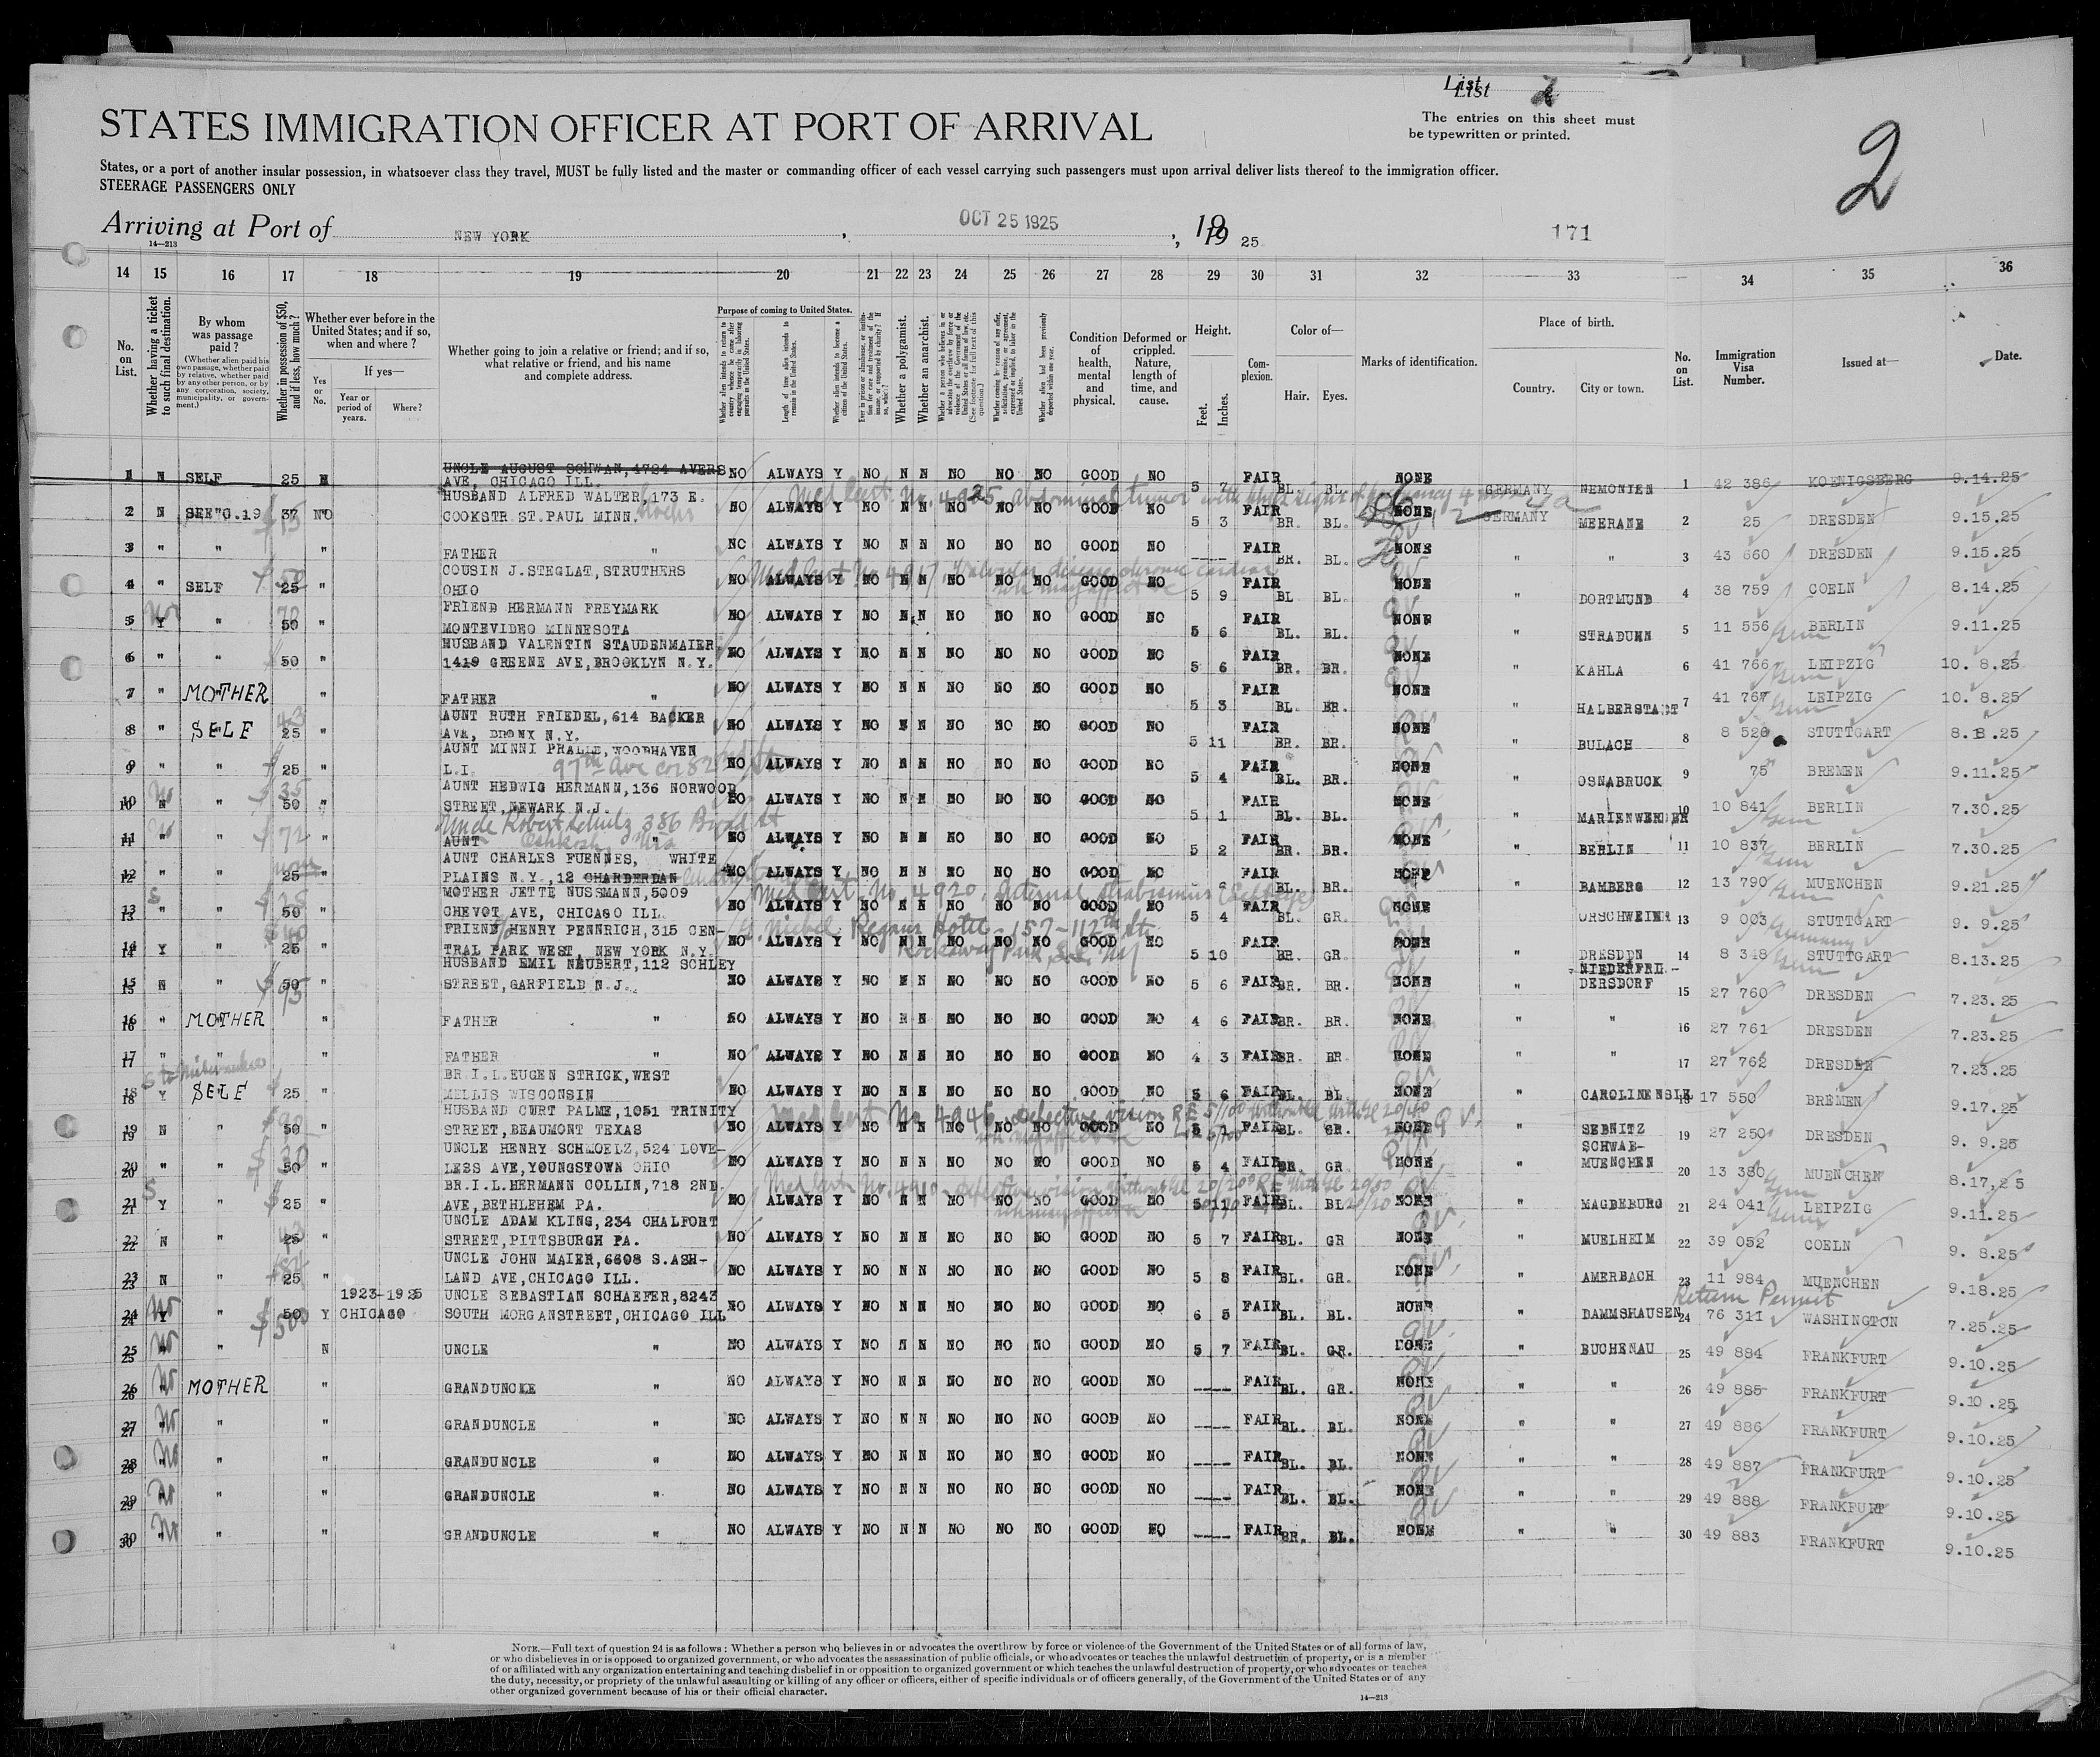 List 2
List
STATES IMMIGRATION OFFICER AT PORT OF ARRIVAL
The entries on this sheet must
be typewritten or printed.
2
States, or a port of another insular possession, in whatsoever class they travel, MUST be fully listed and the master or commanding officer of each vessel carrying such passengers must upon arrival deliver lists thereof to the immigration officer.
STEERAGE PASSENGERS ONLY
Arriving at Port of NEW YORK, OCT 25 1925, 19 25 171
14—213
14 15 16 17 18 19 20 21 22 23 24 25 26 27 28 29 30 31 32 33 34 35 36
No. on List.
Whether having a ticket to such final destination.
By whom was passage paid?
(Whether alien paid his own passage, whether paid by relative, whether paid by any other person, or by any corporation, society, municipality, or government.)
Whether in possession of $50, and if less, how much?
Whether ever before in the United States; and if so, when and where?
Yes or No.
If yes—
Year or period of years.
Where?
Whether going to join a relative or friend; and if so, what relative or friend, and his name and complete address.
Purpose of coming to United States.
Whether alien intends to return to country whence he came after engaging temporarily in laboring pursuits in the United States.
Length of time alien intends to remain in the United States.
Whether alien intends to become a citizen of the United States.
Whether a polygamist.
Whether an anarchist.
Condition of health, mental and physical.
Deformed or crippled. Nature, length of time, and cause.
Height.
Feet. Inches.
Complexion.
Color of—
Hair. Eyes.
Marks of identification.
Place of birth.
Country. City or town.
No. on List.
Immigration Visa Number.
Issued at—
Date.
1 N SELF 25 N UNCLE AUGUST SCHWAN, 4724 AVERS AVE, CHICAGO ILL. NO ALWAYS Y NO N N NO NO NO GOOD NO 5 7 FAIR BL. BL. NONE GERMANY NEMONIEN 1 42 386 KOENIGSBERG 9.14.25
2 N SEE"G.19 37 NO HUSBAND ALFRED WALTER, 173 E. COOKSTR ST.PAUL MINN. NO ALWAYS Y NO N N NO NO NO GOOD NO 5 3 FAIR BR. BL. NONE GERMANY MEERANE 2 25 DRESDEN 9.15.25
Med Cert. No. 4925, abdominal tumor
3 " " " FATHER " NO ALWAYS Y NO N N NO NO NO GOOD NO ---- FAIR BR. BL. NONE " " 3 43 660 DRESDEN 9.15.25
4 " SELF 25 " COUSIN J.STEGLAT, STRUTHERS OHIO NO ALWAYS Y NO N N NO NO NO GOOD NO 5 9 FAIR BL BL. NONE " DORTMUND 4 38 759 COELN 8.14.25
5 Y " 50 " FRIEND HERMANN FREYMARK MONTEVIDEO MINNESOTA NO ALWAYS Y NO N N NO NO NO GOOD NO 5 6 FAIR BL. BL. NONE " STRADUHN 5 11 556 BERLIN 9.11.25
6 " " 50 " HUSBAND VALENTIN STAUDENMAIER 1419 GREENE AVE, BROOKLYN N.Y. NO ALWAYS Y NO N N NO NO NO GOOD NO 5 6 FAIR BR. BR. NONE " KAHLA 6 41 766 LEIPZIG 10. 8.25
7 " MOTHER " FATHER " NO ALWAYS Y NO N N NO NO NO GOOD NO 5 3 FAIR BL. BR. NONE " HALBERSTADT 7 41 767 LEIPZIG 10. 8.25
8 " SELF 25 " AUNT RUTH FRIEDEL, 614 BACKER AVE, BRONX N.Y. NO ALWAYS Y NO N N NO NO NO GOOD NO 5 11 FAIR BR. BR. NONE " BULACH 8 8 528 STUTTGART 8.8.25
9 " " 25 " AUNT MINNI PRALLE, WOODHAVEN L.I. 97th Ave cor 82nd St. NO ALWAYS Y NO N N NO NO NO GOOD NO 5 4 FAIR BL. BR. NONE " OSNABRUCK 9 75 BREMEN 9.11.25
10 N " 50 " AUNT HEDWIG HERMANN, 136 NORWOOD STREET, NEWARK N.J. NO ALWAYS Y NO N N NO NO NO GOOD NO 5 1 FAIR BL. BL. NONE " MARIENWERDER 10 10 841 BERLIN 7.30.25
Uncle Robert Schulz 386 Broad St Oshkosh, Wis
11 " " 72 " AUNT " NO ALWAYS Y NO N N NO NO NO GOOD NO 5 2 FAIR BR. BR. NONE " BERLIN 11 10 837 BERLIN 7.30.25
12 " " 25 " AUNT CHARLES FUENNES, WHITE PLAINS N.Y., 12 CHARDERDAN NO ALWAYS Y NO N N NO NO NO GOOD NO FAIR BL. BR. NONE " BAMBERG 12 13 790 MUENCHEN 9.21.25
Med Cert. No 4920, internal strabismus
13 " " 50 " MOTHER JETTE NUSSMANN, 5009 CHEVOT AVE, CHICAGO ILL. NO ALWAYS Y NO N N NO NO NO GOOD NO 5 4 FAIR BL. GR. NONE " ORSCHWEIER 13 9 003 STUTTGART 9. 9.25
14 Y " 25 " FRIEND HENRY PENNRICH, 315 CENTRAL PARK WEST, NEW YORK N.Y. NO ALWAYS Y NO N N NO NO NO GOOD NO 5 10 FAIR BR. GR. NONE " DRESDEN 14 8 348 STUTTGART 8.13.25
Regans Hotel - 157-112th St. Rockaway Park, L.I. NY
15 N " 50 " HUSBAND EMIL NEUBERT, 112 SCHLEY STREET, GARFIELD N.J. NO ALWAYS Y NO N N NO NO NO GOOD NO 5 6 FAIR BR. BR. NONE " NIEDERFRI.-DERSDORF 15 27 760 DRESDEN 7.23.25
16 " MOTHER " FATHER " NO ALWAYS Y NO N N NO NO NO GOOD NO 4 6 FAIR BR. BR. NONE " " 16 27 761 DRESDEN 7.23.25
17 " " " FATHER " NO ALWAYS Y NO N N NO NO NO GOOD NO 4 3 FAIR BR. BR NONE " " 17 27 762 DRESDEN 7.23.25
18 Y SELF 25 " BR.I.L.EUGEN STRICK, WEST MELLIS WISCONSIN NO ALWAYS Y NO N N NO NO NO GOOD NO 5 6 FAIR BL. BL NONE " CAROLINENSIE 18 17 550 BREMEN 9.17.25
Med Cert No 4946, defective vision
19 N " 50 " HUSBAND CURT PALME, 1051 TRINITY STREET, BEAUMONT TEXAS NO ALWAYS Y NO N N NO NO NO GOOD NO 5 1 FAIR BL. GR. NONE " SEBNITZ 19 27 250 DRESDEN 9. 9.25
20 " " 50 " UNCLE HENRY SCHMOELZ, 524 LOVELESS AVE, YOUNGSTOWN OHIO NO ALWAYS Y NO N N NO NO NO GOOD NO 5 4 FAIR BR. GR NONE " SCHWAB-MUENCHEN 20 13 380 MUENCHEN 8.17,25
21 Y " 25 " BR.I.L.HERMANN COLLIN, 718 2ND. AVE, BETHLEHEM PA. NO ALWAYS Y NO N N NO NO NO GOOD NO 5 11 FAIR BL. BL NONE " MAGDEBURG 21 24 041 LEIPZIG 9.11.25
22 N " 25 " UNCLE ADAM KLING, 234 CHALFORT STREET, PITTSBURGH PA. NO ALWAYS Y NO N N NO NO NO GOOD NO 5 7 FAIR BL. GR NONE " MUELHEIM 22 39 052 COELN 9. 8.25
23 N " 25 " UNCLE JOHN MAIER, 6608 S.ASHLAND AVE, CHICAGO ILL. NO ALWAYS Y NO N N NO NO NO GOOD NO 5 8 FAIR BL. GR. NONE " AMERBACH 23 11 984 MUENCHEN 9.18.25
Return Permit
24 Y " 50 Y 1923-1925 CHICAGO UNCLE SEBASTIAN SCHAEFER, 8243 SOUTH MORGANSTREET, CHICAGO ILL NO ALWAYS Y NO N N NO NO NO GOOD NO 6 5 FAIR BL. BL. NONE " DAMMSHAUSEN 24 76 311 WASHINGTON 7.25.25
25 No " N UNCLE " NO ALWAYS Y NO N N NO NO NO GOOD NO 5 7 FAIR BL. GR. NONE " BUCHENAU 25 49 884 FRANKFURT 9.10.25
26 No MOTHER " GRANDUNCLE " NO ALWAYS Y NO N N NO NO NO GOOD NO ---- FAIR BL. GR. NONE " " 26 49 885 FRANKFURT 9.10.25
27 No " " GRANDUNCLE " NO ALWAYS Y NO N N NO NO NO GOOD NO ---- FAIR BL. BL. NONE " " 27 49 886 FRANKFURT 9.10.25
28 No " " GRANDUNCLE " NO ALWAYS Y NO N N NO NO NO GOOD NO ---- FAIR BL. BL. NONE " " 28 49 887 FRANKFURT 9.10.25
29 No " " GRANDUNCLE " NO ALWAYS Y NO N N NO NO NO GOOD NO ---- FAIR BL. BL. NONE " " 29 49 888 FRANKFURT 9.10.25
30 No " " GRANDUNCLE " NO ALWAYS Y NO N N NO NO NO GOOD NO ---- FAIR BR. BL. NONE " " 30 49 883 FRANKFURT 9.10.25
NOTE.—Full text of question 24 is as follows: Whether a person who believes in or advocates the overthrow by force or violence of the Government of the United States or of all forms of law,
or who disbelieves in or is opposed to organized government, or who advocates the assassination of public officials, or who advocates or teaches the unlawful destruction of property, or is a member
of or affiliated with any organization entertaining and teaching disbelief in or opposition to organized government or which teaches the unlawful destruction of property, or who advocates or teaches
the duty, necessity, or propriety of the unlawful assaulting or killing of any officer or officers, either of specific individuals or of officers generally, of the Government of the United States or of any
other organized government because of his or their official character.
14—213